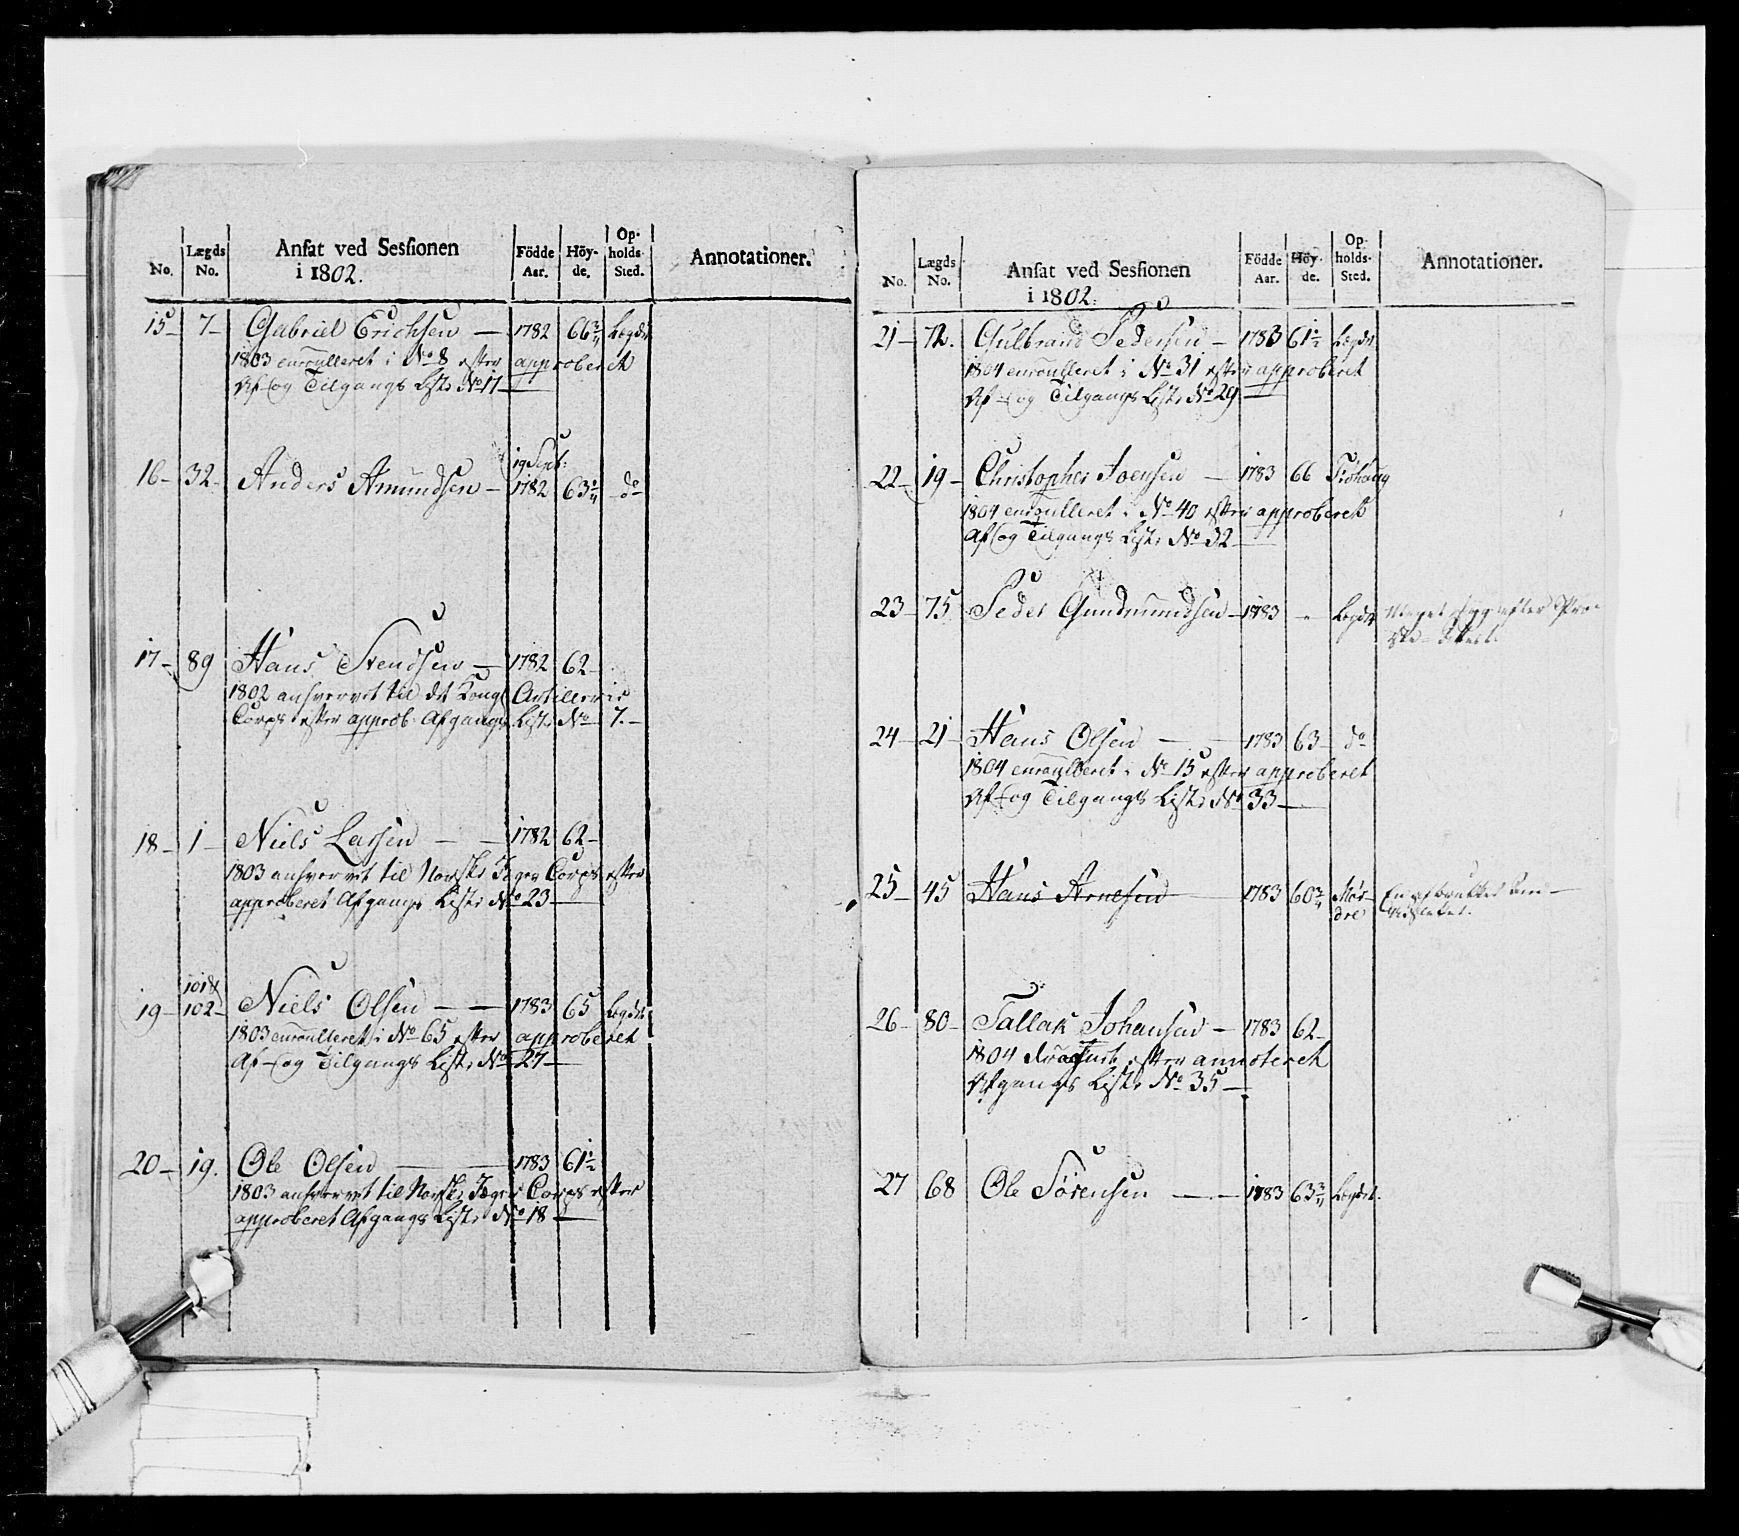 No. Lægds No. Ansat ved Sessionen i 1802. Födde Aar. Höy- de. Op- holds- Sted. Annotationer.
15 – 7 – Gabriel Erichsen — 1782 66 3/4 Lægdet
1803 enroulleret i No 8 efter approberet
Af- og Tilgangs Liste No 17 —
19 Sept:
16 – 32 – Anders Amundsen – 1782 63 do
17 – 89 Hans Svendsen — 1782 62 –
1802 anhvervet til det Kongl Artillerie
Corps efter approb: Afgangs Liste No 7. –
18 – 1 – Niels Larsen — — 1782 62 –
1803 anhvervet til Norske Jæger Corps efter
approberet Afgangs Liste No 23 —
101 &
19 – 102 – Niels Olsen — — 1783 65 Lægdet
1803 enroulleret i No 65 efter approberet
Af- og Tilgangs Liste No 27 —
20 – 19. Ole Olsen — — 1783 61 1/2
1803 anhvervet til Norske Jæger Corps efter
approberet Afgangs Liste No 18 —
No. Lægds No. Ansat ved Sessionen i 1802. Födde Aar. Höy- de. Op- holds- Sted. Annotationer.
21 – 72. Gulbrand Pedersen – 1783 61 1/2 Lægdet
1804 enroulleret i No 31 efter approberet
Af- og Tilgangs Liste No 29 —
22 – 19 – Christopher Joensen — 1783 66
1804 enroulleret i No 40 efter approberet
Af- og Tilgangs Liste No 32 —
23 – 75 Peder Gundmundsen – 1783 – Lægdet Meget syg efter Præ-
24 – 21 – Hans Olsen — — 1783 63 – do
1804 enroulleret i No 15 efter approberet
Af- og Tilgangs Liste No 33 —
25 – 45 Hans Arnesen — 1783 60 3/4 Mör-
dre
26 – 80 – Tallak Johansen — 1783 62 –
1804 efter annoteret
Afgangs Liste No 35 —
27 68 Ole Sörensen — — 1783 63 3/4 Lægdet.